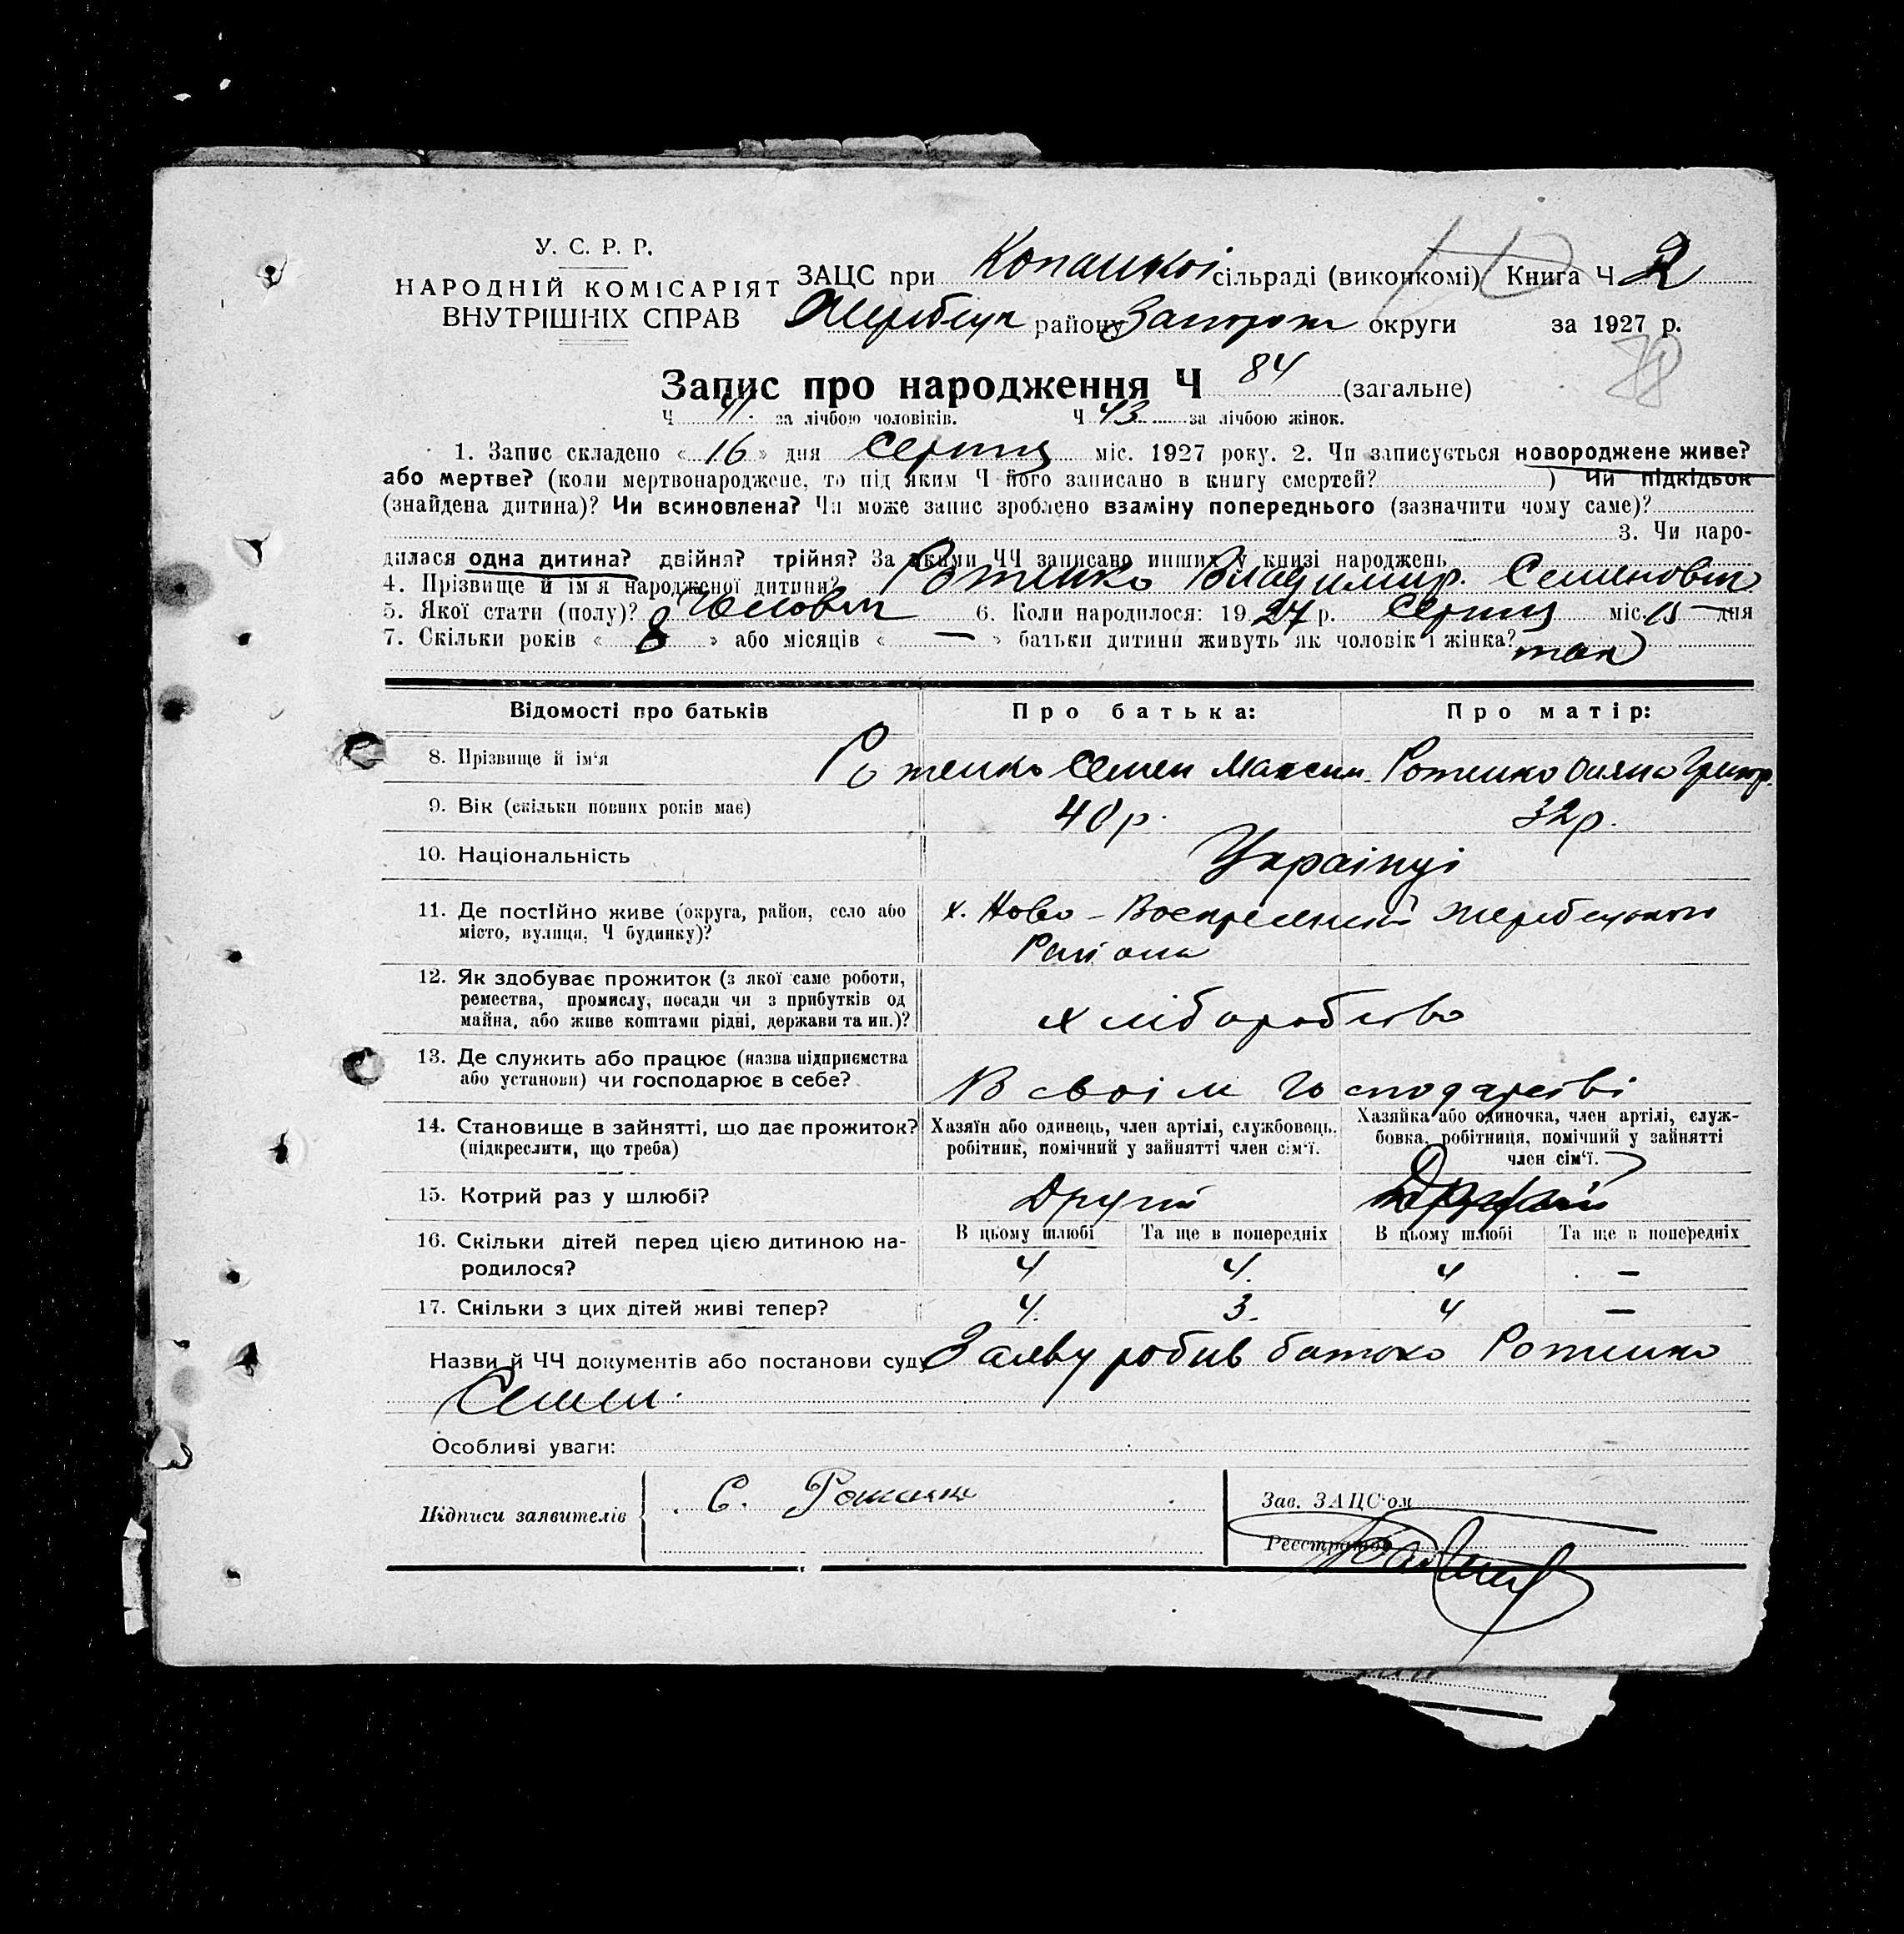 У. С. Р. Р.
НАРОДНІЙ КОМІСАРІЯТ
ВНУТРІШНІХ СПРАВ
ЗАЦС при сільраді (виконкомі) Книга Ч 2
району округи за 1927 р.
Запис про народження Ч 84 (загальне)
Ч 41 за лічбою чоловіків. Ч 43 за лічбою жінок.
1. Запис складено « 16 » дня Серпня міс. 1927 року. 2. Чи записується новороджене живе?
або мертве? (коли мертвонароджене, то під яким Ч його записано в книгу смертей? ) Чи підкідьок
(знайдена дитина)? Чи всиновлена? Чи може запис зроблено взаміну попереднього (зазначити чому саме)?
3. Чи наро-
дилася одна дитина? двійня? трійня? За якими ЧЧ записано инших у книзі народжень
4. Прізвище й ім'я народженої дитини? Ротенко Владимир. Семенович
5. Якої стати (полу)? Чоловіч 6. Коли народилося: 1927 р. Серпня міс. 15 дня
7. Скільки років « 8 » або місяців « — » батьки дитини живуть як чоловік і жінка? так
Відомості про батьків Про батька: Про матір:
8. Прізвище й ім'я Ротенко Семен Максим. Ротенко Григор.
9. Вік (скільки повних років має) 40 р. 32 р.
10. Національність Українці
11. Де постійно живе (округа, район, село або х. Ново-Воскресенский Жеребецького
місто, вулиця, Ч будинку)? Района
12. Як здобуває прожиток (з якої саме роботи,
ремества, промислу, посади чи з прибутків од
майна, або живе коштами рідні, держави та ин.)? хліборобство
13. Де служить або працює (назва підприємства
або установи) чи господарює в себе? В своім господарстві
14. Становище в зайнятті, що дає прожиток? Хазяїн або одинець, член артілі, службовець, Хазяйка або одиночка, член артілі, служ-
(підкреслити, що треба) робітник, помічний у зайнятті член сім'ї. бовка, робітниця, помічний у зайнятті
член сім'ї.
15. Котрий раз у шлюбі? Другий
16. Скільки дітей перед цією дитиною на- В цьому шлюбі Та ще в попередніх В цьому шлюбі Та ще в попередніх
родилося? 4 4. 4 —
17. Скільки з цих дітей живі тепер? 4. 3. 4 —
Назви й ЧЧ документів або постанови суду Заяву робив батько Ротенко
Семен.
Особливі уваги:
Підписи заявителів С. Зав. ЗАЦС'ом
Реєстратор